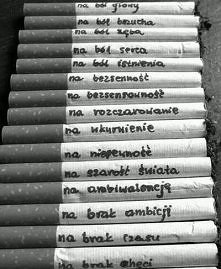 na ból głowy
na ból brzucha
na ból zęba
na ból serca
na ból istnienia
na bezsenność
na bezsensowność
na rozczarowanie
na wkurwienie
na niepewność
na szarość świata
na ambiwalencję
na brak ambicji
na brak czasu
na brak chęci